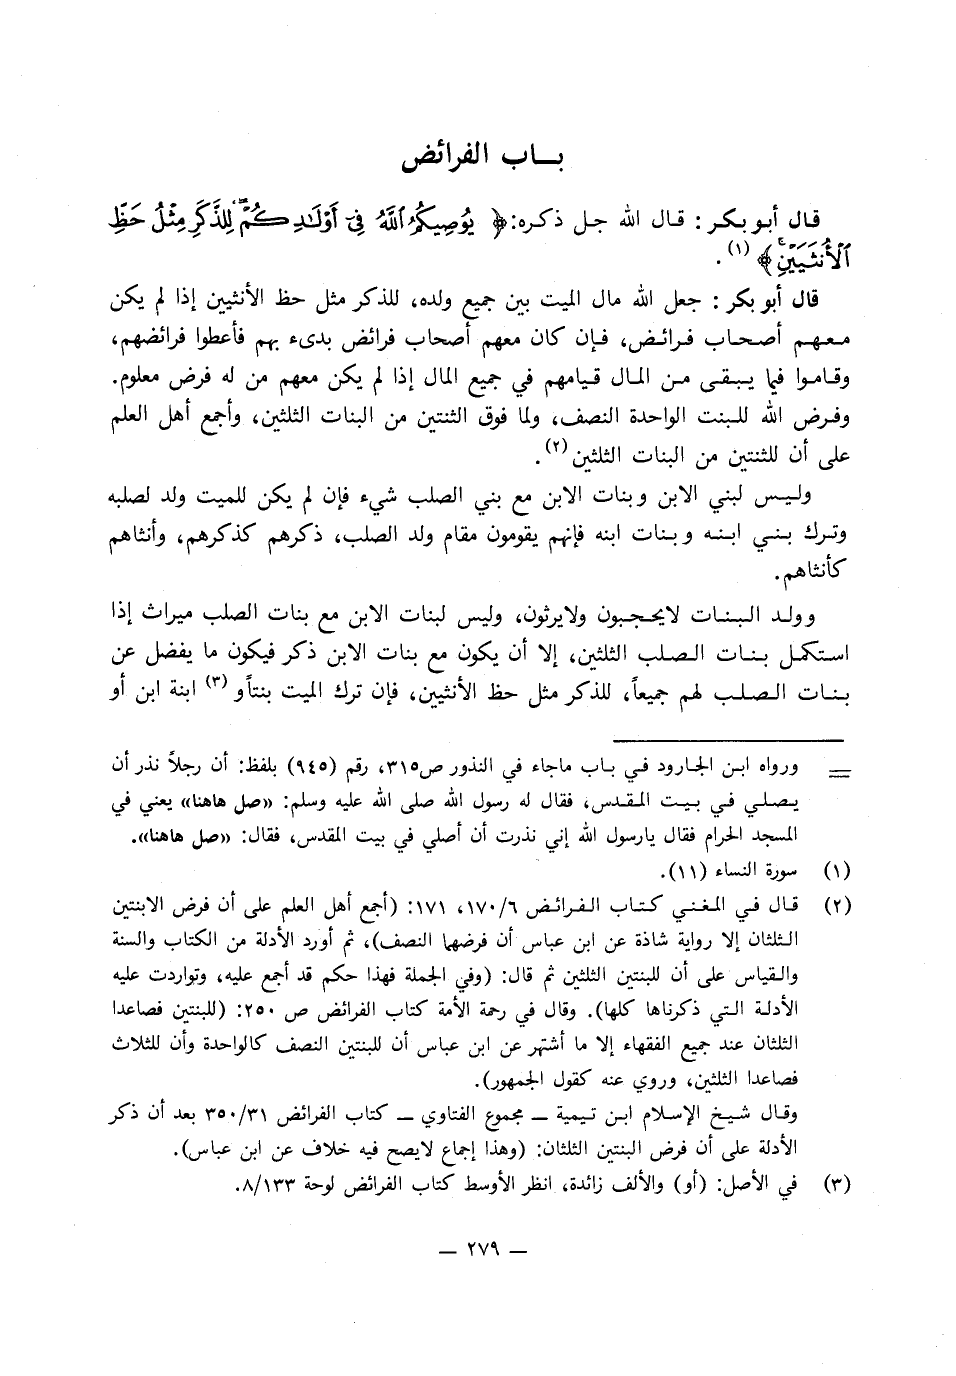 بـاب الفرائض
قال أبو بكر : قال الله جل ذكره: ﴿ يُوصِيكُمُ ٱللَّهُ فِىٓ أَوْلَٰدِكُمْ ۖ لِلذَّكَرِ مِثْلُ حَظِّ
ٱلْأُنثَيَيْنِ ۚ ﴾ (١) .
قال أبو بكر : جعل الله مال الميت بين جميع ولده، للذكر مثل حظ الأنثيين إذا لم يكن
معهم أصحاب فرائض، فإن كان معهم أصحاب فرائض بدىء بهم فأعطوا فرائضهم،
وقاموا فيما يبقى من المال قيامهم في جميع المال إذا لم يكن معهم من له فرض معلوم.
وفرض الله للبنت الواحدة النصف، ولما فوق الثنتين من البنات الثلثين، وأجمع أهل العلم
على أن للثنتين من البنات الثلثين (٢) .
وليس لبني الابن وبنات الابن مع بني الصلب شيء فإن لم يكن للميت ولد لصلبه
وترك بني ابنه وبنات ابنه فإنهم يقومون مقام ولد الصلب، ذكرهم كذكرهم، وأنثاهم
كأنثاهم.
وولد البنات لايحجبون ولايرثون، وليس لبنات الابن مع بنات الصلب ميراث إذا
استكمل بنات الصلب الثلثين، إلا أن يكون مع بنات الابن ذكر فيكون ما يفضل عن
بنات الصلب لهم جميعاً، للذكر مثل حظ الأنثيين، فإن ترك الميت بنتاً و (٣) ابنة ابن أو
= ورواه ابن الجارود في باب ماجاء في النذور ص٣١٥، رقم (٩٤٥) بلفظ: أن رجلاً نذر أن
يصلي في بيت المقدس، فقال له رسول الله صلى الله عليه وسلم: «صل هاهنا» يعني في
المسجد الحرام فقال يارسول الله إني نذرت أن أصلي في بيت المقدس، فقال: «صل هاهنا».
(١) سورة النساء (١١).
(٢) قال في المغني كتاب الفرائض ١٧٠/٦، ١٧١: (أجمع أهل العلم على أن فرض الابنتين
الثلثان إلا رواية شاذة عن ابن عباس أن فرضها النصف)، ثم أورد الأدلة من الكتاب والسنة
والقياس على أن للبنتين الثلثين ثم قال: (وفي الجملة فهذا حكم قد أجمع عليه، وتواردت عليه
الأدلة التي ذكرناها كلها). وقال في رحمة الأمة كتاب الفرائض ص ٢٥٠: (للبنتين فصاعدا
الثلثان عند جميع الفقهاء إلا ما أشتهر عن ابن عباس أن للبنتين النصف كالواحدة وأن للثلاث
فصاعدا الثلثين، وروي عنه كقول الجمهور).
وقال شيخ الإسلام ابن تيمية ــ مجموع الفتاوي ــ كتاب الفرائض ٣٥٠/٣١ بعد أن ذكر
الأدلة على أن فرض البنتين الثلثان: (وهذا إجماع لايصح فيه خلاف عن ابن عباس).
(٣) في الأصل: (أو) والألف زائدة، انظر الأوسط كتاب الفرائض لوحة ٨/١٣٣.
— ٢٧٩ —